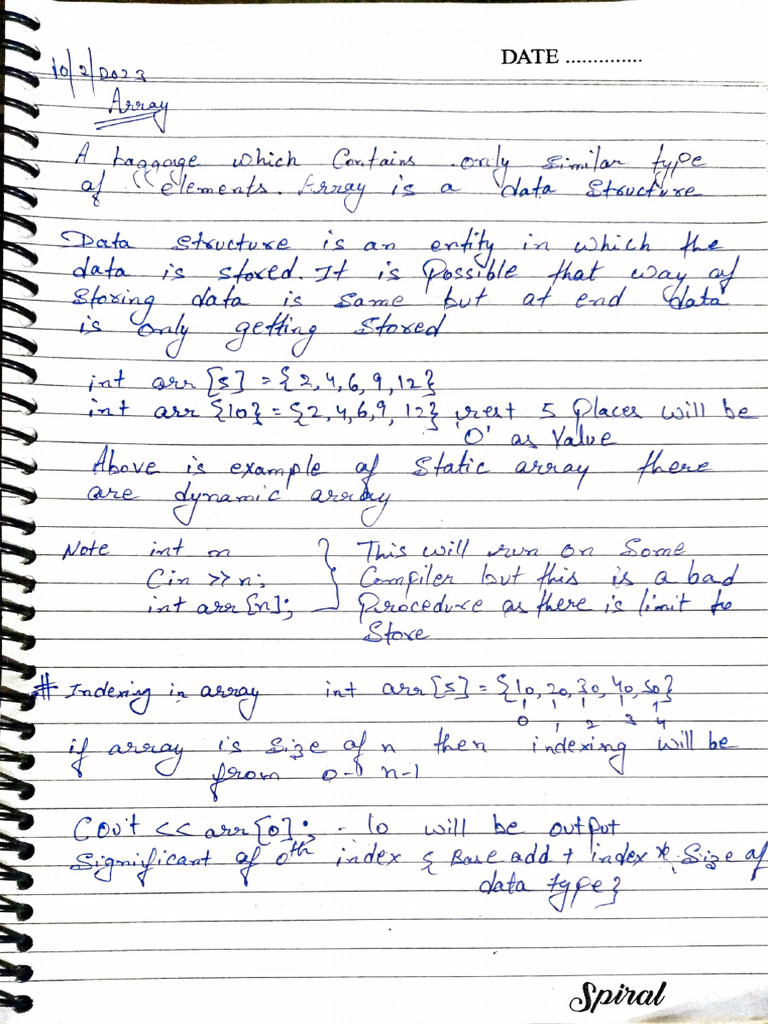 DATE ..............
10/2/2023
Array
A baggage which Contains only similar type
of elements. Array is a data structure
Data structure is an entity in which the
data is stored. It is Possible that way of
storing data is same but at end data
is only getting stored
int arr [5] = {2,4,6,9,12}
int arr {10} = {2,4,6,9, 12} , rest 5 Places will be
'0' as Value
Above is example of Static array there
are dynamic array
Note int n } This will run on Some
Cin >> n; Compiler but this is a bad
int arr [n]; Procedure as there is limit to
Store
# Indexing in array int arr [5] = {10, 20, 30, 40, 50}
0 1 2 3 4
if array is size of n then indexing will be
from 0 - n-1
Cout << arr [0]; - 10 will be output
Significant of 0th index { Base add + index * Size of
data type}
Spiral